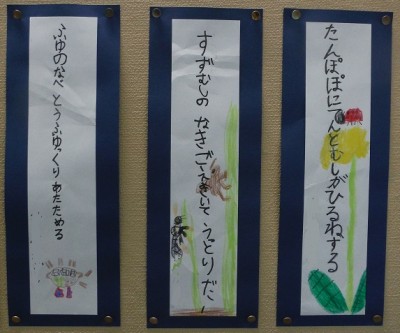 たんぽぽにてんとむしがひるねする
すずむしの なきごえきいて うっとりだー
ふゆのなべ とうふゆっくり あたためる